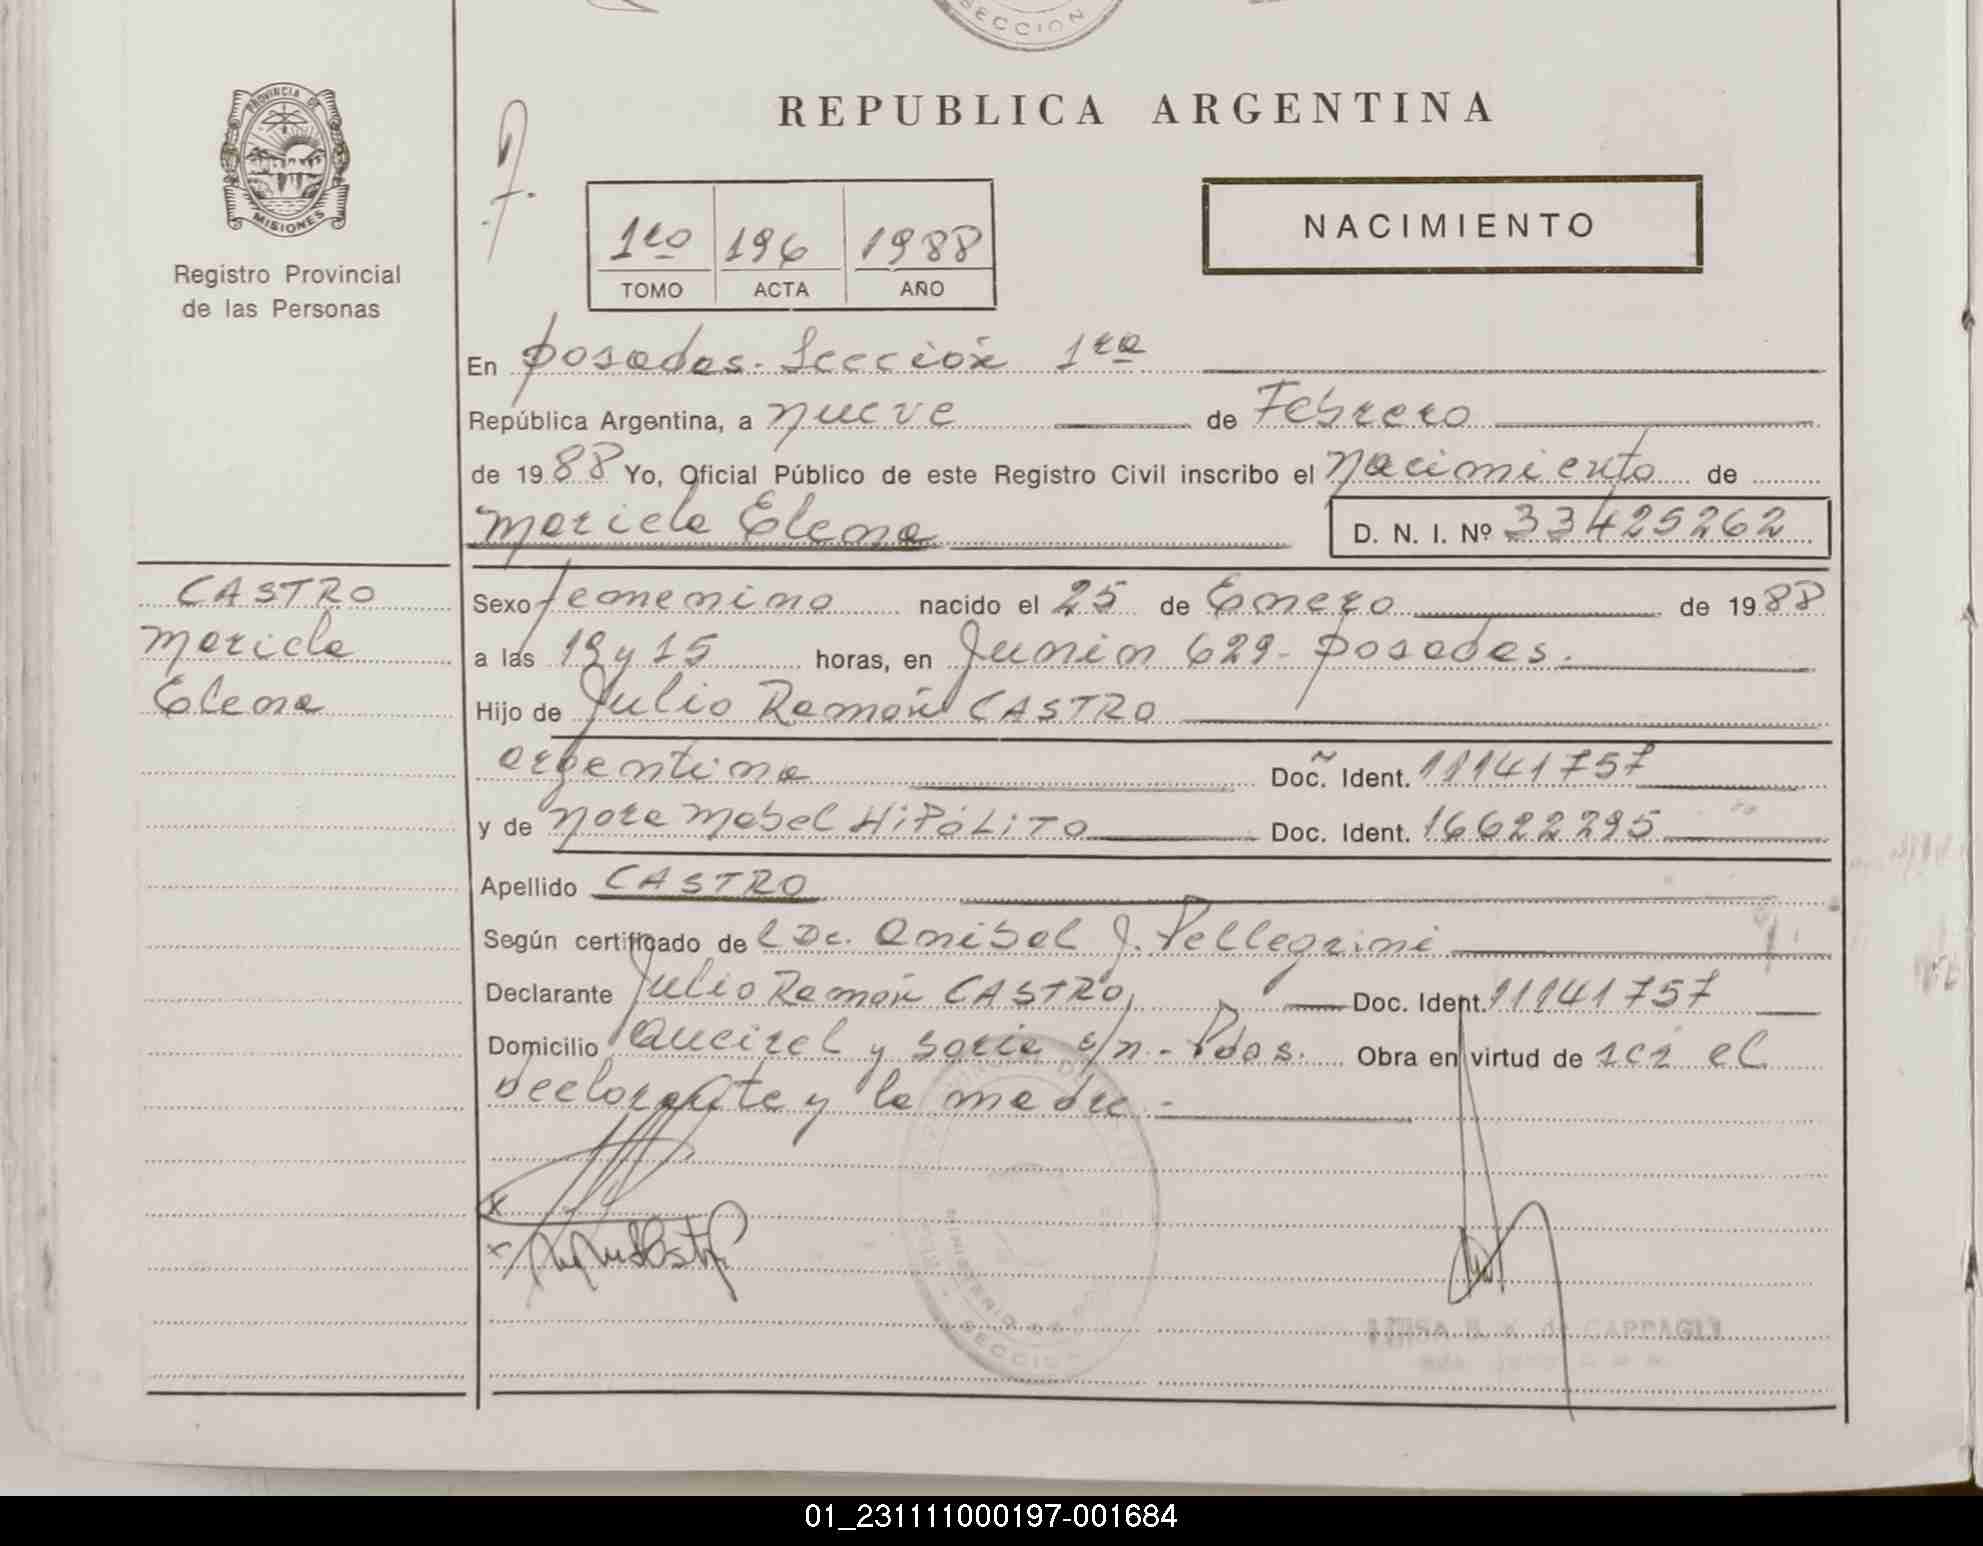 SECCION
PROVINCIA DE
MISIONES
Registro Provincial
de las Personas
REPUBLICA ARGENTINA
NACIMIENTO
1ro 196 1988
TOMO ACTA AÑO
En Posadas. Sección 1ra
República Argentina, a nueve de Febrero
de 1988 Yo, Oficial Público de este Registro Civil inscribo el Nacimiento de
Mariela Elena D. N. I. Nº 33425262
CASTRO
Mariela
Elena
Sexo femenino nacido el 25 de Enero de 1988
a las 19 y 15 horas, en Junin 629 - Posadas.
Hijo de Julio Ramón CASTRO
argentina Doc. Ident. 11141757
y de Nora Mabel HIPÓLITO Doc. Ident. 16622295
Apellido CASTRO
Según certificado de l Dr. Anibal J. Pellegrini
Declarante Julio Ramón CASTRO, Doc. Ident. 11141757
Domicilio Queirel y Soria s/n - Pdas. Obra en virtud de ser el
Declarante y la madre -
MINISTERIO DE
SECCION
de CAPPAGLI
01_231111000197-001684